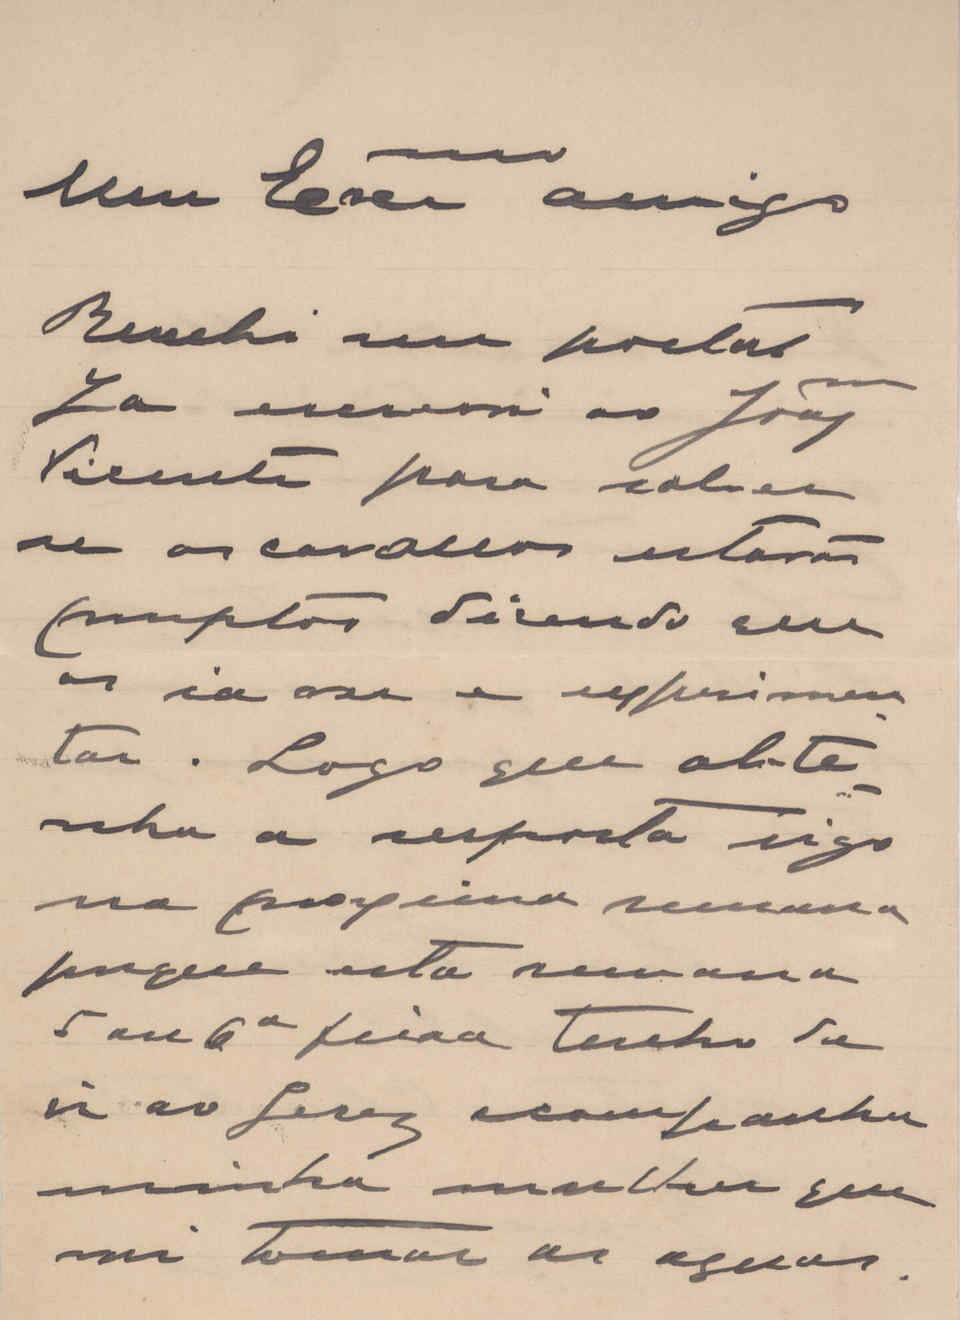 Meu Exmo amigo
Recebi seu postal
Ja escrevi ao Joaqm
Vicente para saber
se os cavallos estavão
promptos dizendo que
os ia ver e experimen
tar. Logo que obte-
nha a resposta sigo
na proxima semana
porque esta semana
5 ou 6ª feira tenho de
ir ao Gerez acompanhar
minha mulher que
vai tomar as aguas.